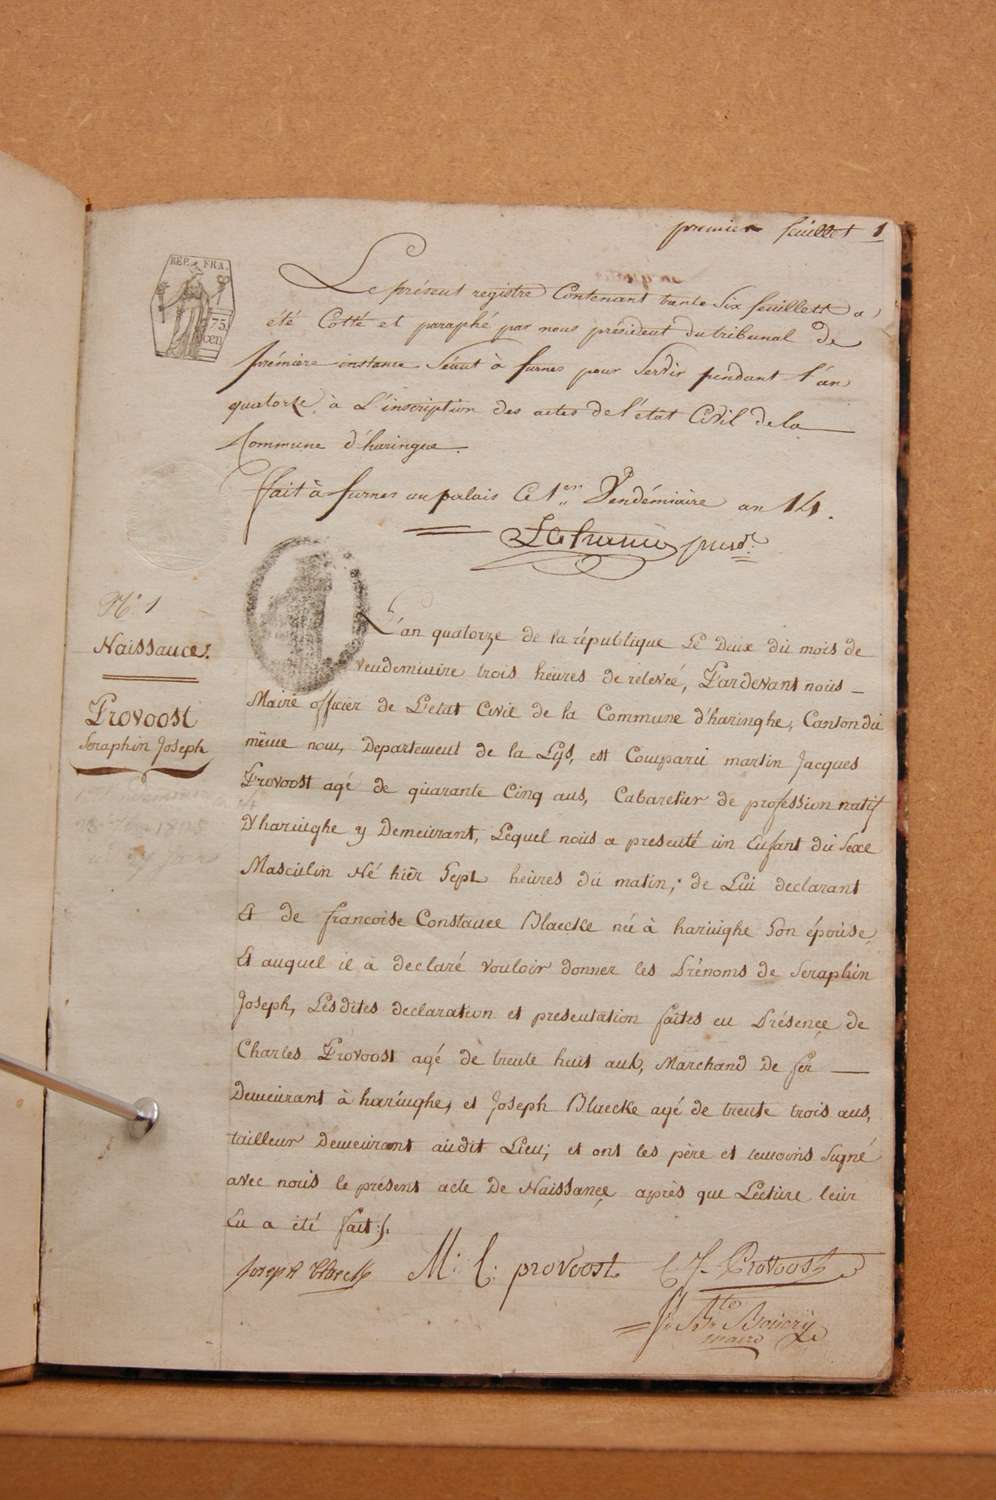 premier feuillet 1
REP. FRA.
75
cen
Le présent registre Contenant trente Six feuillets a
été Cotté et paraphé par nous président du tribunal de
première instance Séant à furnes pour Servir pendant l'an
quatorze, à L'inscription des actes de l'état Civil de la
Commune d'haringue.
fait à furnes au palais Ce 1er Vendémiaire an 14.
presdt.
N° 1
Naissance.
Provoost
Seraphin Joseph
L'an quatorze de la république Le Deux du mois de
vendemiaire trois heures de relevée, Pardevant nous
Maire officier de L'etat Civil de la Commune d'haringhe, Canton du
même nom, Departement de la Lÿs, est Comparu martin Jacques
Provoost agé de quarante Cinq ans, Cabaretier de profession natif
D'haringhe y Demeurant, Lequel nous a presenté un Enfant du Sexe
Masculin Né hier Sept heures du matin, de Lui declarant
Et de francoise Constance Blaecke né à haringhe Son épouse,
Et auquel il à declaré vouloir donner les Prénoms de Seraphin
Joseph, Lesdites declaration et presentation faites en Présence de
Charles Provoost agé de trente huit ans, Marchand de fer
Demeurant à haringhe, et Joseph Blaecke agé de trente trois ans,
tailleur Demeurant audit Lieu; et ont les père et temoins Signé
avec nous le présent acte De Naissance après que Lecture leur
En a été fait.
Josep M: C: provoost C J Provoost
Bouery
maire